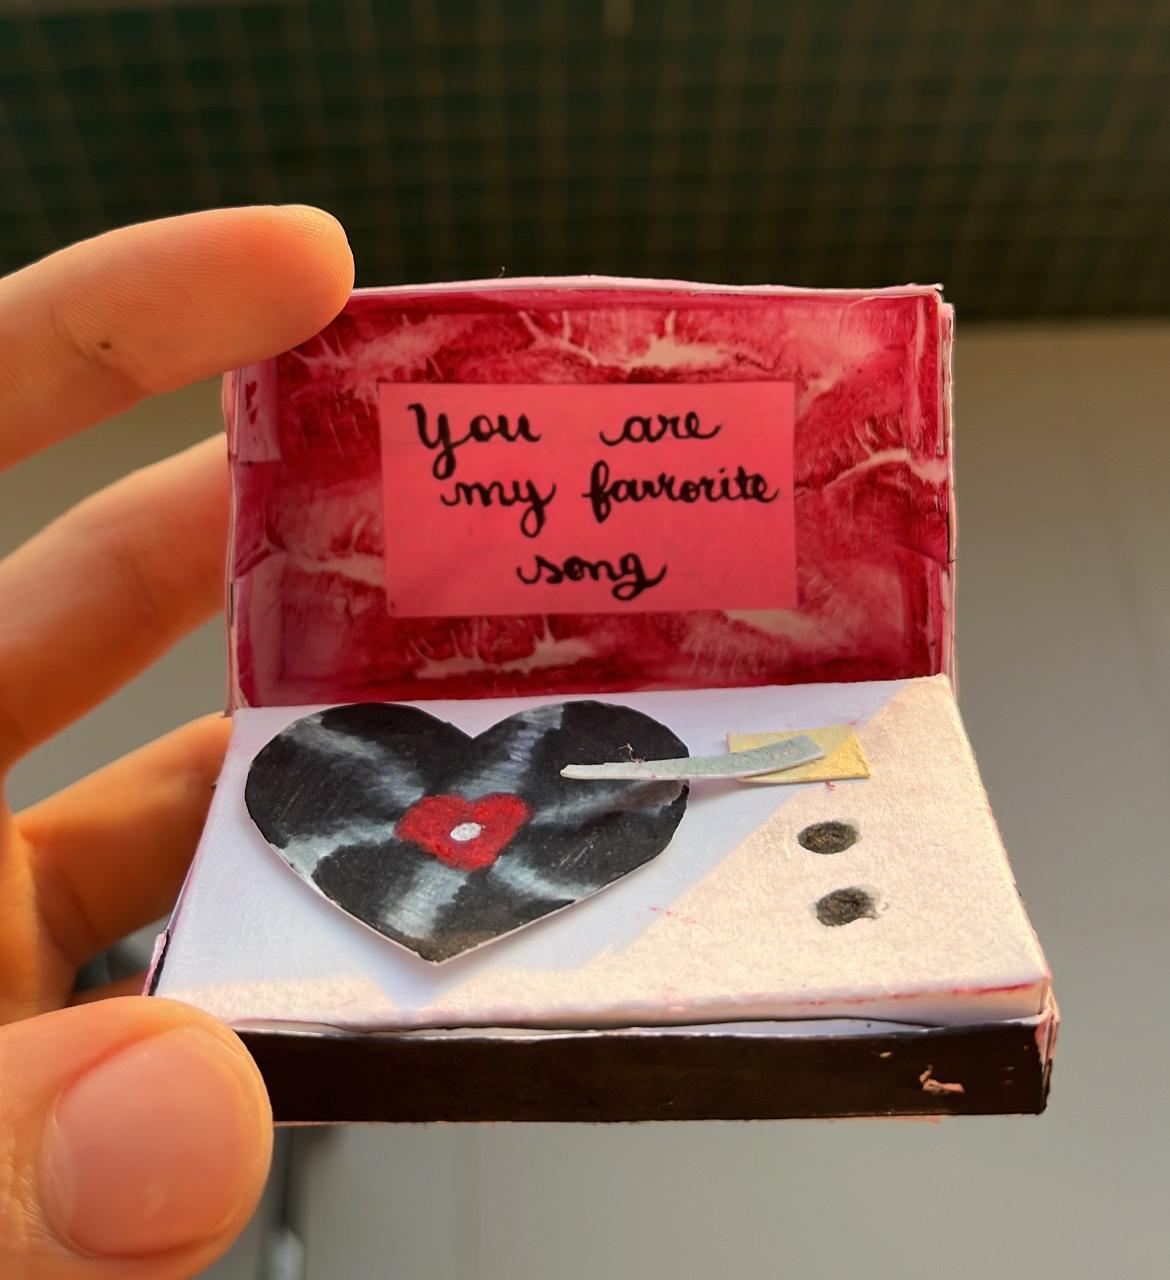 You are
my favorite
song